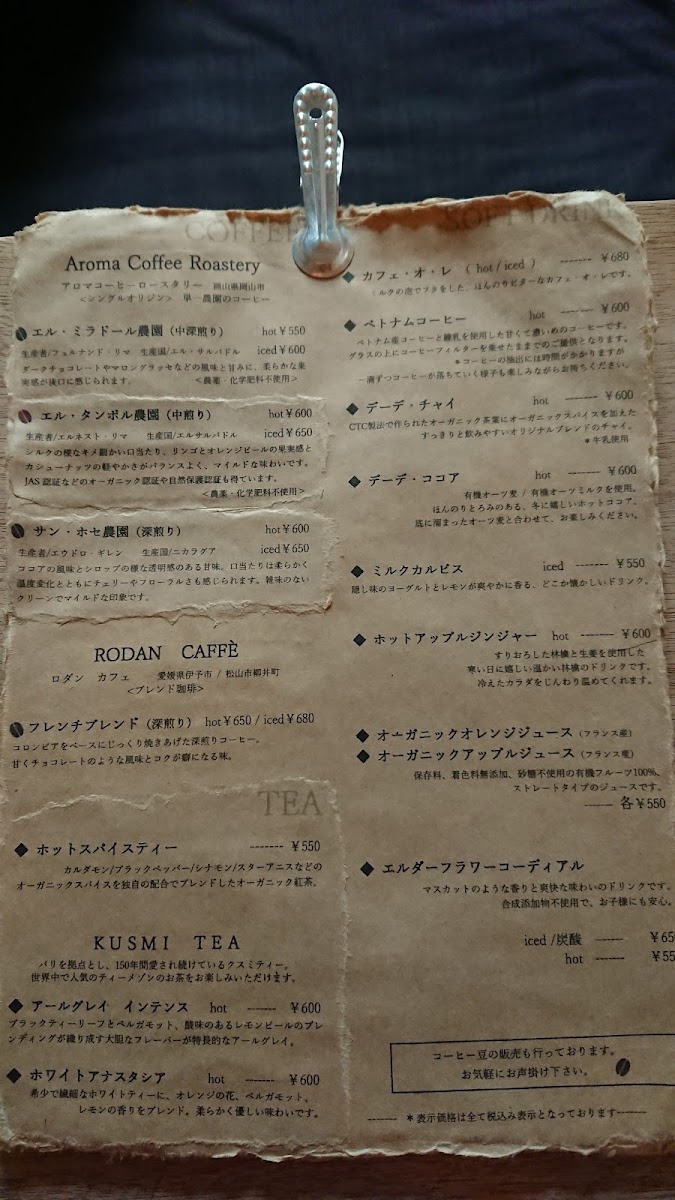 COFFEE
Aroma Coffee Roastery
アロマコーヒーロースタリー 岡山県岡山市
<シングルオリジン> 単一農園のコーヒー
エル・ミラドール農園（中深煎り） hot¥550
生産者/フェルナンド・リマ 生産国/エル・サルバドル iced¥600
ダークチョコレートやマロングラッセなどの風味と甘みに、柔らかな果
実感が後口に感じられます。 <農薬・化学肥料不使用>
エル・タンボル農園（中煎り） hot¥600
生産者/エルネスト・リマ 生産国/エルサルバドル iced¥650
シルクの様なキメ細かい口当たり、リンゴとオレンジピールの果実感と
カシューナッツの軽やかさがバランスよく、マイルドな味わいです。
JAS認証などのオーガニック認証や自然保護認証も得ています。
<農薬・化学肥料不使用>
サン・ホセ農園（深煎り） hot¥600
生産者/エウドロ・ギレン 生産国/ニカラグア iced¥650
ココアの風味とシロップの様な透明感のある甘味。口当たりは柔らかく
温度変化とともにチェリーやフローラルさも感じられます。雑味のない
クリーンでマイルドな印象です。
RODAN CAFFÈ
ロダン カフェ 愛媛県伊予市 / 松山市柳井町
<ブレンド珈琲>
フレンチブレンド（深煎り） hot¥650 / iced¥680
コロンビアをベースにじっくり焼きあげた深煎りコーヒー。
甘くチョコレートのような風味とコクが癖になる味。
TEA
◆ ホットスパイスティー ------- ¥550
カルダモン/ブラックペッパー/シナモン/スターアニスなどの
オーガニックスパイスを独自の配合でブレンドしたオーガニック紅茶。
KUSMI TEA
パリを拠点とし、150年間愛され続けているクスミティー。
世界中で人気のティーメゾンのお茶をお楽しみいただけます。
◆ アールグレイ インテンス hot ------ ¥600
ブラックティーリーフとベルガモット、酸味のあるレモンピールのブレ
ンディングが織り成す大胆なフレーバーが特長的なアールグレイ。
◆ ホワイトアナスタシア hot ----- ¥600
希少で繊細なホワイトティーに、オレンジの花、ベルガモット、
レモンの香りをブレンド。柔らかく優しい味わいです。
SOFT DRINK
◆ カフェ・オ・レ （ hot / iced ） ------- ¥680
ミルクの泡でフタをした、ほんのりビターなカフェ・オ・レです。
◆ ベトナムコーヒー hot ------ ¥600
ベトナム産コーヒーと練乳を使用した甘くて濃いめのコーヒーです。
グラスの上にコーヒーフィルターを乗せたままでのご提供となります。
＊コーヒーの抽出には時間がかかりますが
一滴ずつコーヒーが落ちていく様子も楽しみながらお待ちください。
◆ デーデ・チャイ hot ------ ¥600
CTC製法で作られたオーガニック茶葉にオーガニックスパイスを加えた
すっきりと飲みやすいオリジナルブレンドのチャイ。
＊牛乳使用
◆ デーデ・ココア hot ------ ¥600
有機オーツ麦 / 有機オーツミルクを使用。
ほんのりとろみのある、冬に嬉しいホットココア。
底に溜まったオーツ麦と合わせて、お楽しみください。
◆ ミルクカルピス iced ------- ¥550
隠し味のヨーグルトとレモンが爽やかに香る、どこか懐かしいドリンク。
◆ ホットアップルジンジャー hot ----- ¥600
すりおろした林檎と生姜を使用した
寒い日に嬉しい温かい林檎のドリンクです。
冷えたカラダをじんわり温めてくれます。
◆ オーガニックオレンジジュース（フランス産）
◆ オーガニックアップルジュース（フランス産）
保存料、着色料無添加、砂糖不使用の有機フルーツ100%、
ストレートタイプのジュースです。
------ 各¥550
◆ エルダーフラワーコーディアル
マスカットのような香りと爽快な味わいのドリンクです。
合成添加物不使用で、お子様にも安心。
iced /炭酸 ------ ¥65
hot ------ ¥55
コーヒー豆の販売も行っております。
お気軽にお声掛け下さい。
------- ＊表示価格は全て税込み表示となっております-------